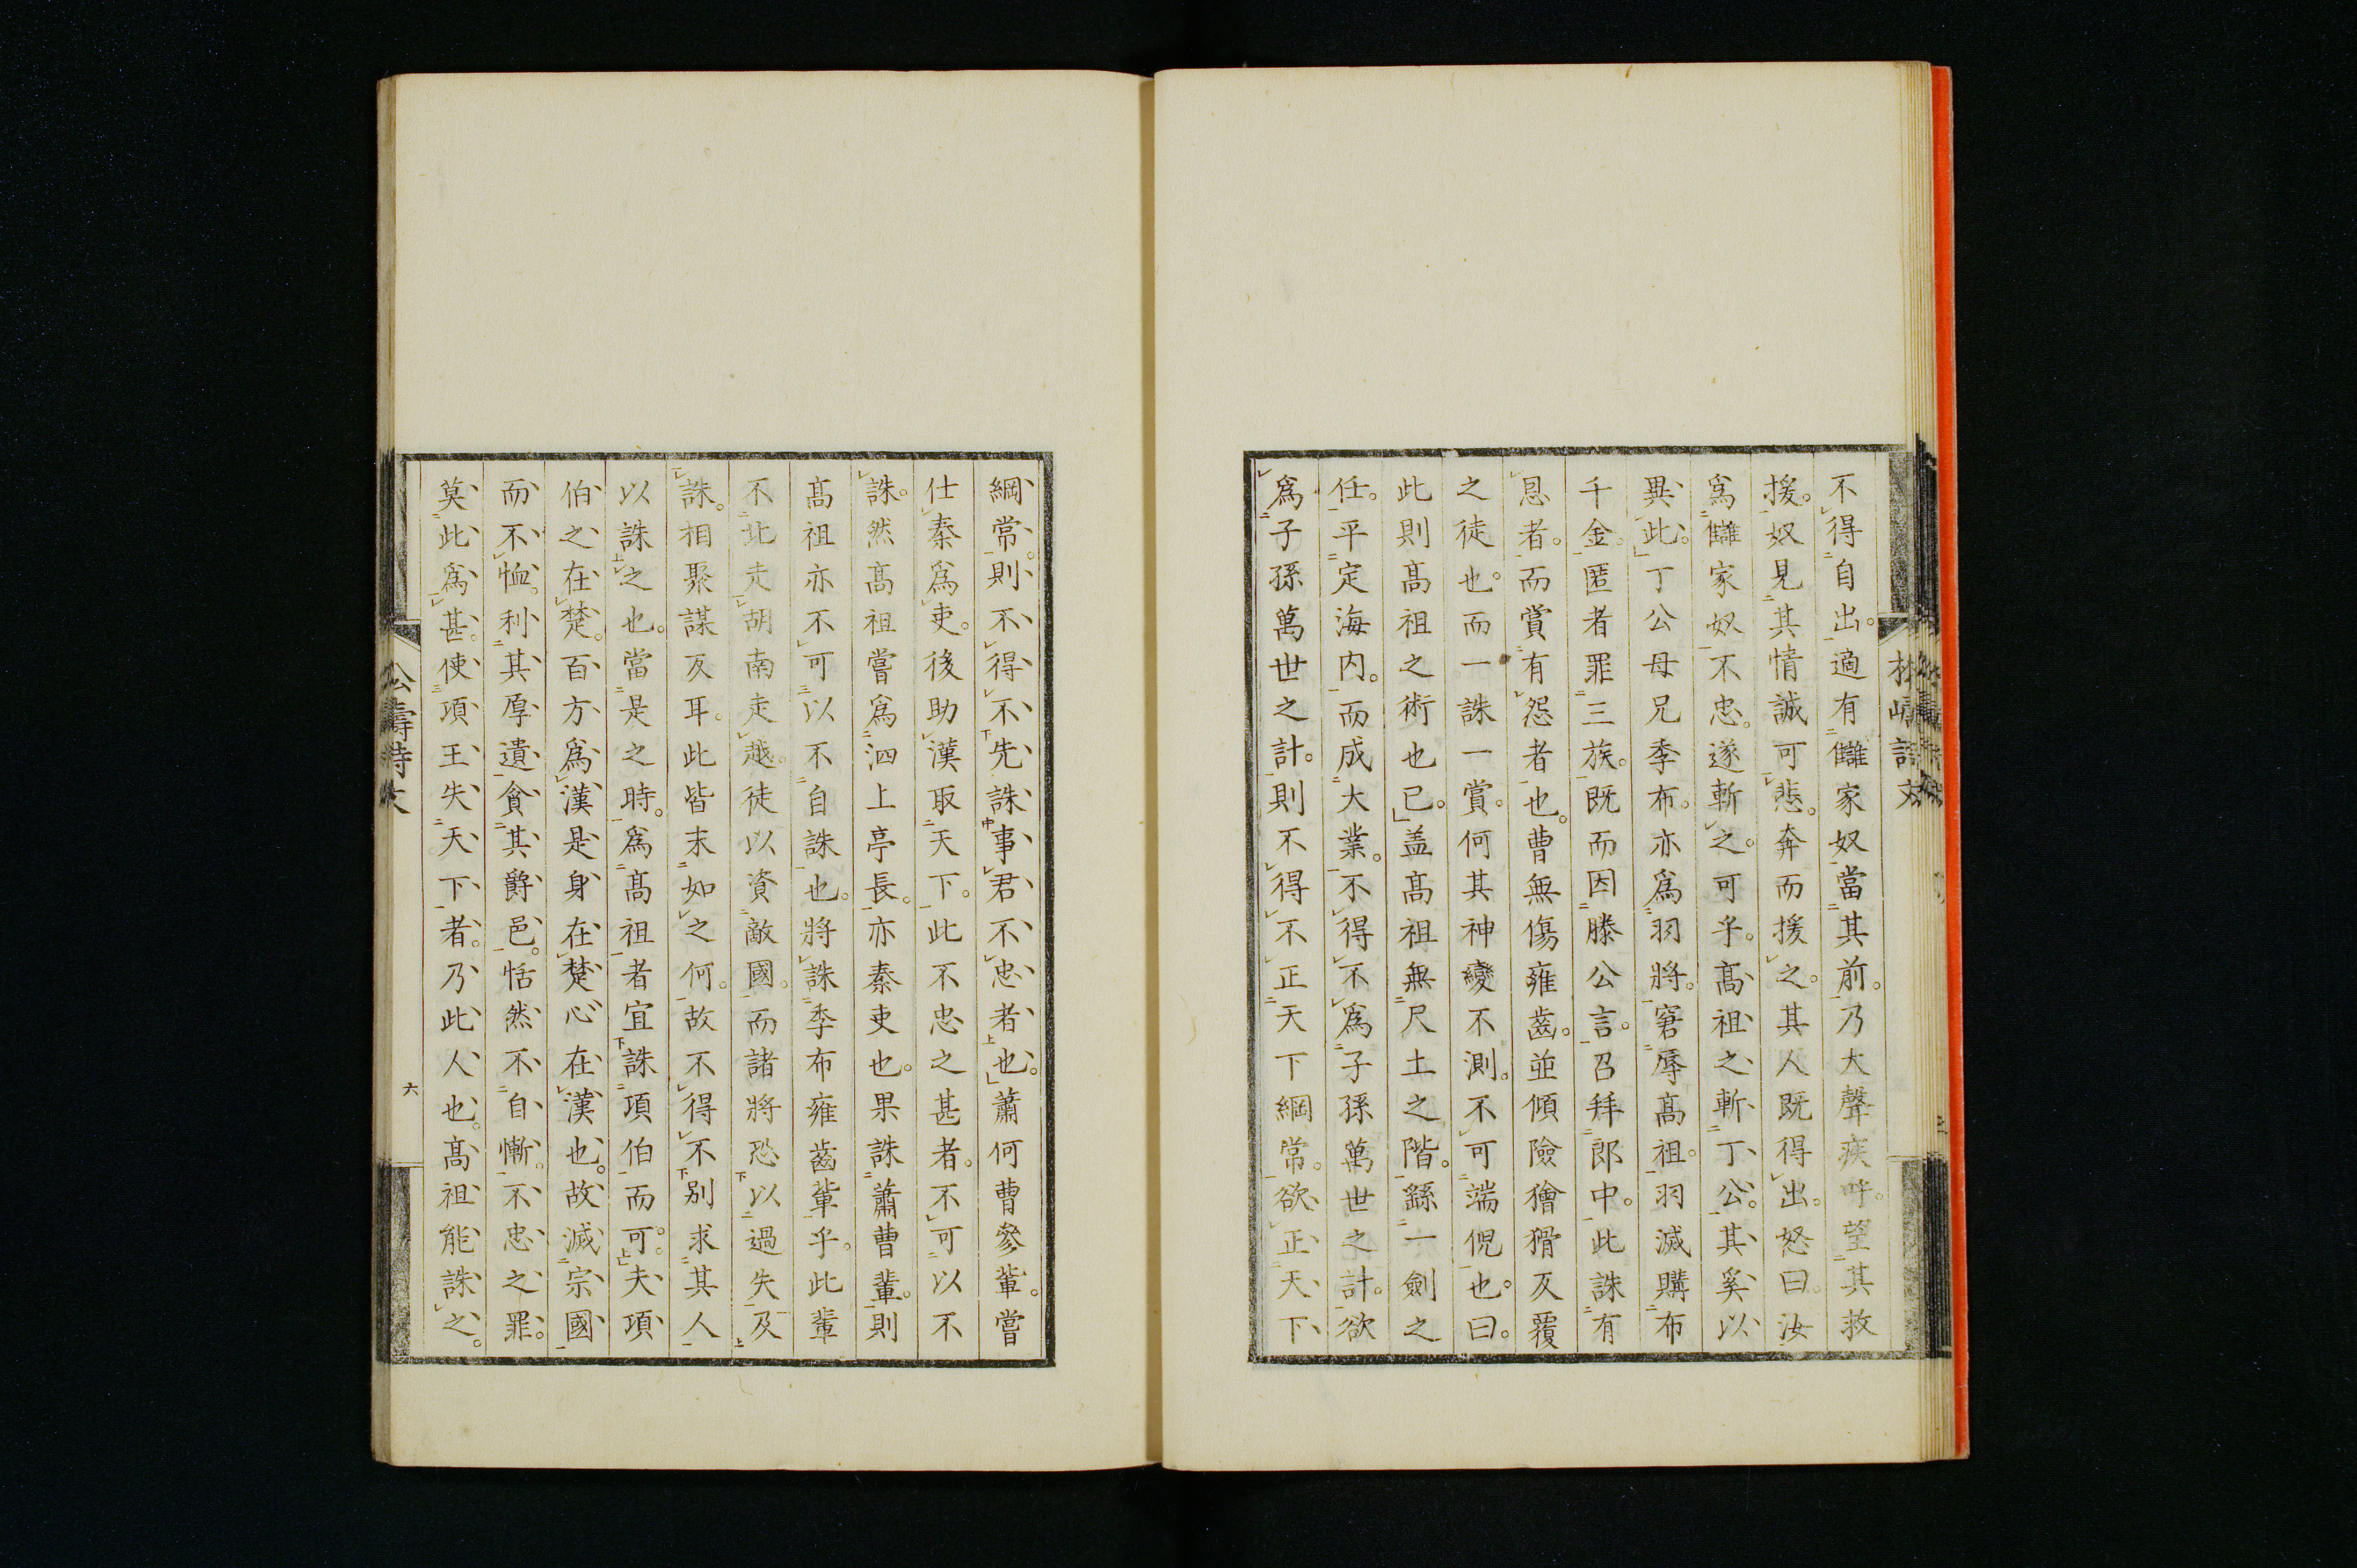 不得自出。適有讎家奴當其前。乃大聲疾呼。望其救
援。奴見其情誠可悲。奔而援之。其人既得出。怒曰。汝
爲讎家奴不忠。遂斬之。可乎。髙祖之斬丁公。其奚以
異此。」丁公母兄季布。亦爲羽將。窘辱髙祖。羽滅購布
千金。匿者罪三族。既而因滕公言。召拜郎中。此誅有
恩者。而賞有怨者也。曹無傷雍齒。並傾險獪猾反覆
之徒也。而一誅一賞。何其神變不測。不可端倪也。曰。
此則髙祖之術也已。」盖髙祖無尺土之階。繇一劍之
任。平定海内。而成大業。不得不爲子孫萬世之計。欲
爲子孫萬世之計。則不得不正天下綱常。欲正天下
綱常。則不得不先誅事君不忠者也。」蕭何曹參輩。嘗
仕秦爲吏。後助漢取天下。此不忠之甚者。不可以不
誅。然髙祖嘗爲泗上亭長。亦秦吏也。果誅蕭曹輩。則
髙祖亦不可以不自誅也。將誅季布雍齒輩乎。此輩
不北走胡南走越。徒以資敵國。而諸將恐以過失及
誅。相聚謀反耳。此皆末如之何。故不得不別求其人
以誅之也。當是之時。爲髙祖者宜誅項伯而可。」夫項
伯之在楚。百方爲漢是身在楚心在漢也。故滅宗國
而不恤。利其厚遺貪其爵邑。恬然不自慚。不忠之罪。
莫此爲甚。使項王失天下者。乃此人也。髙祖能誅之。
六